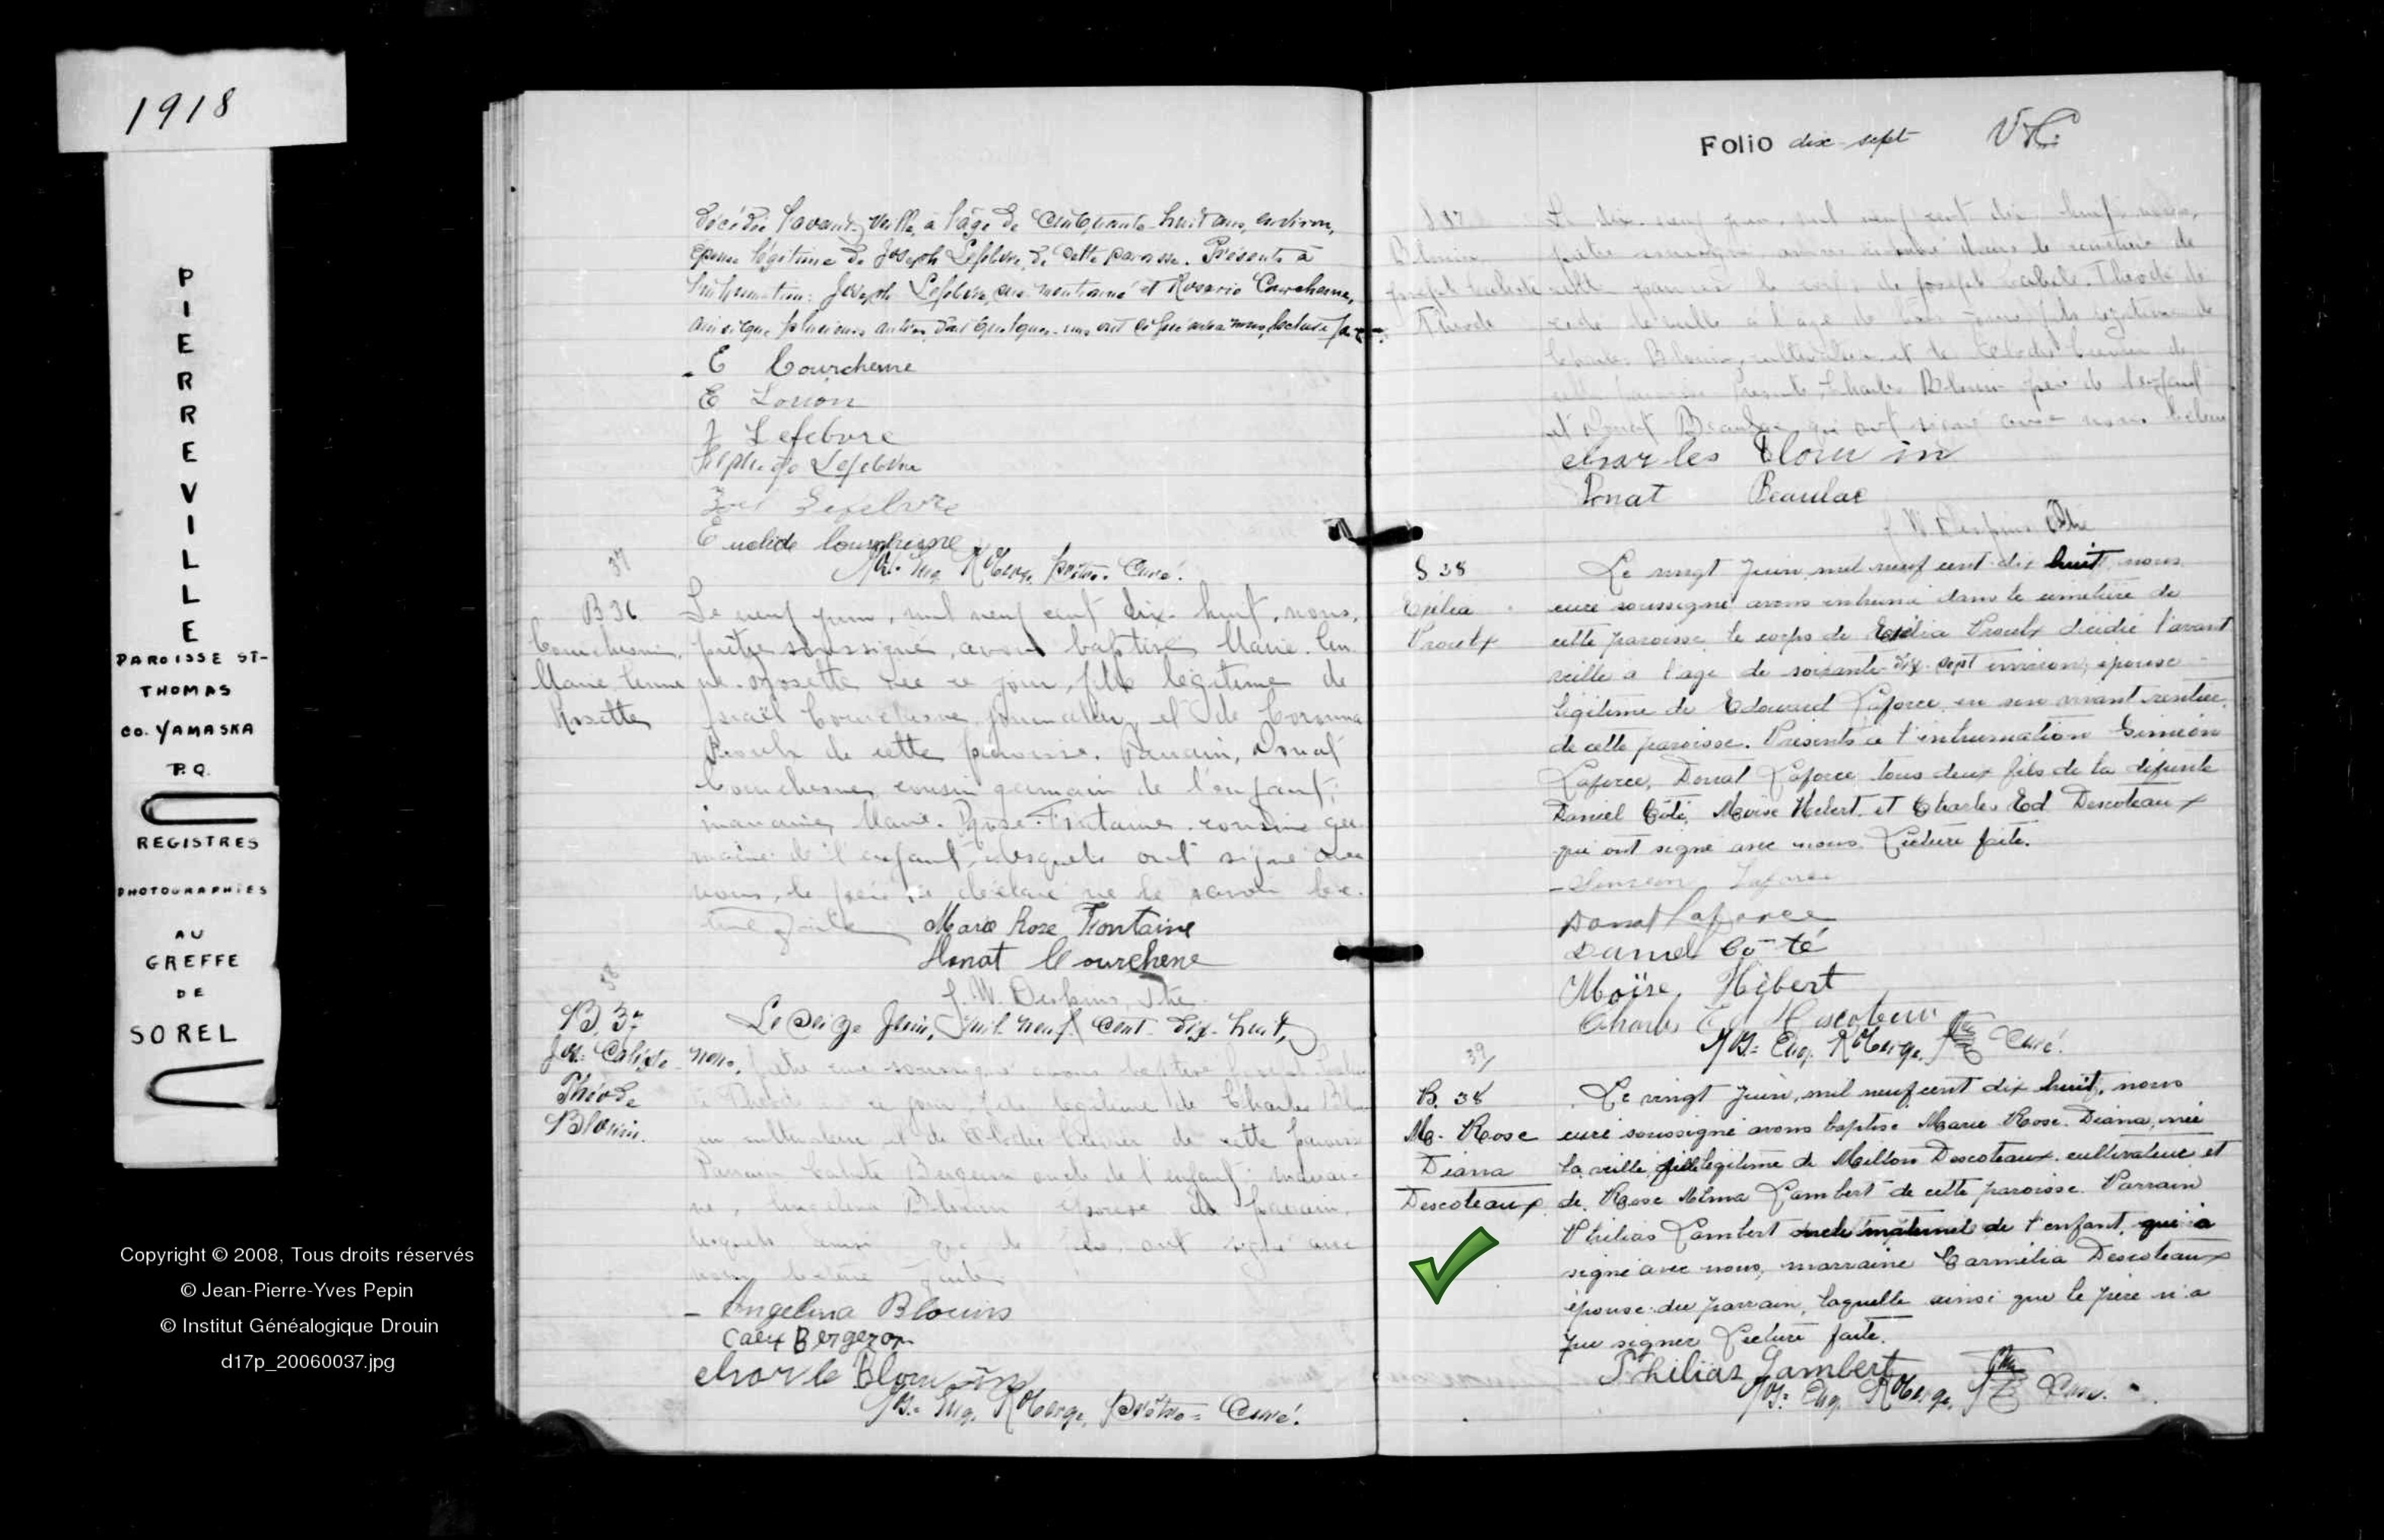 1918
PIERREVILLE
PAROISSE ST-
THOMAS
CO. YAMASKA
P.Q.
REGISTRES
PHOTOGRAPHIES
AU
GREFFE
DE
SOREL
Copyright © 2008, Tous droits réservés
© Jean-Pierre-Yves Pepin
© Institut Généalogique Drouin
d17p_20060037.jpg
décédée l'avant-veille, à l'âge de cinquante-huit ans, environ,
épouse légitime de Joseph Lefebvre, de cette paroisse. Présents à
l'inhumation: Joseph Lefebvre, et Rosario Courchesne,
ainsi que plusieurs autres, dont quelques-uns ont signé avec nous, lecture faite.
E Courchesne
E
J Lefebvre
Lefebvre
Lefebvre
Euclide Courchesne
Eug. Roberge, Prêtre-Curé.
37
B 36
Courchesne,
Marie. Anne
Rosette
Le neuf juin, mil neuf cent dix-huit, nous,
prêtre soussigné, avons baptisé Marie. An
ne. Rosette née ce jour, fille légitime de
Israël Courchesne, journalier, et de Corona
Proulx de cette paroisse. Parrain, Donat
Courchesne, cousin germain de l'enfant;
marraine, Marie. Rose. Fontaine, cousine ger
maine de l'enfant, lesquels ont signé avec
nous, le père a déclaré ne le savoir. Lec
ture faite
Marie Rose Fontaine
Donat Courchene
J. W. Despins, Ptre
38
B. 37
Jos. Calixte
Théode
Blouin.
Le seize Juin, mil neuf cent dix-huit,
nous, prêtre curé soussigné avons baptisé Joseph
Théode né ce jour, fils légitime de Charles Blou
in cultivateur et de Elodie de cette paroisse
Parrain Calixte Bergeron oncle de l'enfant marrai-
ne, Angelina Blouin épouse du parrain,
lesquels ainsi que le père ont signé avec
nous lecture faite
Angelina Blouin
Calix Bergeron
Charle Blouin
Eug. Roberge, Prêtre-Curé.
Folio dix-sept
S 37
Blouin
Joseph Calixte
Théode
Le dix-neuf juin, mil neuf cent dix-huit, nous,
prêtre soussigné, avons inhumé dans le cimetière de
cette paroisse le corps de Joseph Calixte. Théode dé
cédé la veille à l'âge de trois jours, fils légitime de
Charles Blouin, cultivateur, et de Elodie de
cette paroisse. Présents, Charles Blouin père de l'enfant
et Donat Beaulac qui ont signé avec nous. Lecture
Charles Blouin
Donat Beaulac
J. W. Despins Ptre
S 38
Exilia
Proulx
Le vingt Juin, mil neuf cent dix huit, nous
curé soussigné avons inhumé dans le cimetière de
cette paroisse, le corps de Exilia Proulx décédée l'avant
veille à l'age de soixante-dix-sept environ, épouse
légitime de Edouard Laforce, en son vivant rentier,
de cette paroisse. Présents à l'inhumation Siméon
Laforce, Donat Laforce tous deux fils de la défunte
Daniel Côté, Moïse Hébert, et Charles Ed Descoteaux
qui ont signé avec nous. Lecture faite.
Simeon Laforce
Donat Laforce
Daniel Côté
Moïse Hébert
Charles Ed Descoteau
Eug. Roberge, Ptre Curé.
39
B. 38
M. Rose
Diana
Descoteaux
Le vingt Juin, mil neuf cent dix huit, nous
curé soussigné avons baptisé Marie Rose. Diana, née
la veille, fille légitime de Millon Descoteaux cultivateur et
de Rose Alma Lambert de cette paroisse. Parrain
Philias Lambert oncle maternel de l'enfant, qui a
signé avec nous, marraine Carmélia Descoteaux
épouse du parrain, laquelle ainsi que le père n'a
pu signer Lecture faite.
Philias Lambert
Eug. Roberge, Ptre Curé.